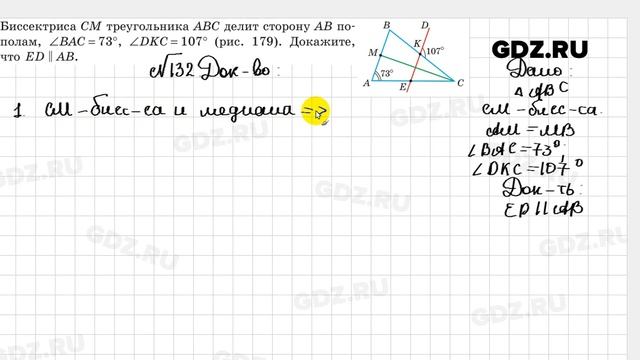 Биссектриса CM треугольника ABC делит сторону AB по-
полам, ∠BAC = 73°, ∠DKC = 107° (рис. 179). Докажите,
что ED ∥ AB.
B
D
K
107°
M
73°
A
E
C
GDZ.RU
№132 Док-во:
1. CM - бисс-са и медиана =>
Дано:
△ABC
CM - бисс-са.
AM = MB
∠BAC = 73°
∠DKC = 107°
Док-ть:
ED || AB
GDZ.RU
GDZ.RU
GDZ.RU
GDZ.RU
GDZ.RU
GDZ.RU